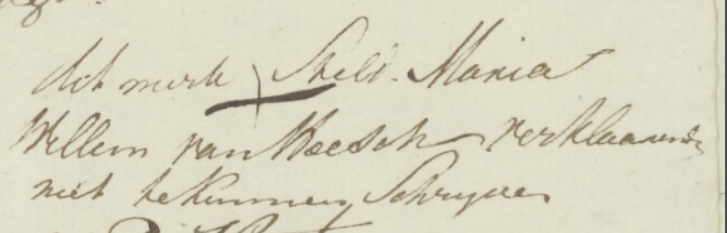 dit merk stelt Maria
Willem van Heesch verklaarende
niet te kunnen Schryven